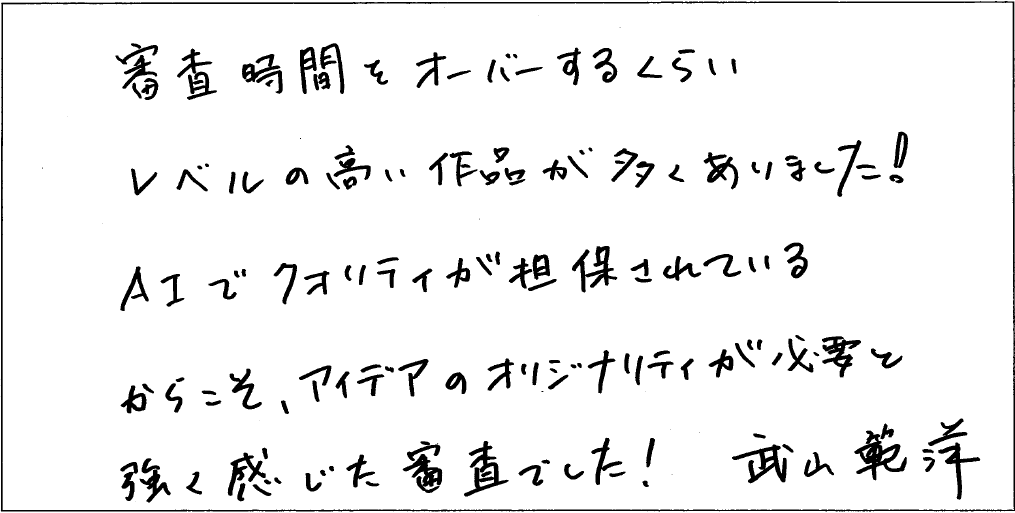 審査時間をオーバーするくらい
レベルの高い作品が多くありました!
AIでクオリティが担保されている
からこそ、アイデアのオリジナリティが必要と
強く感じた審査でした! 武山範洋